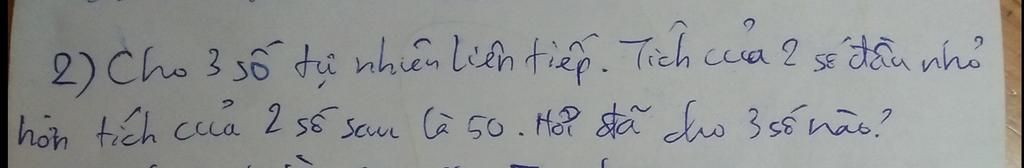 2) Cho 3 số tự nhiên liên tiếp. Tích của 2 số đầu nhỏ
hơn tích của 2 số sau là 50. Hỏi đã cho 3 số nào?